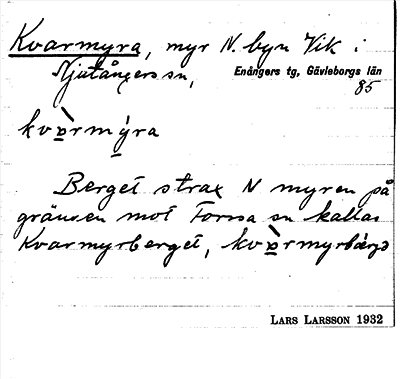 Kvarmyra, myr N. byn Vik i
Njutångers sn,
Enångers tg, Gävleborgs län
85
kvàrmýra
Berget strax N myren på
gränsen mot Forssa sn kallas
Kvarmyrberget, kvàrmyrbærjə
LARS LARSSON 1932